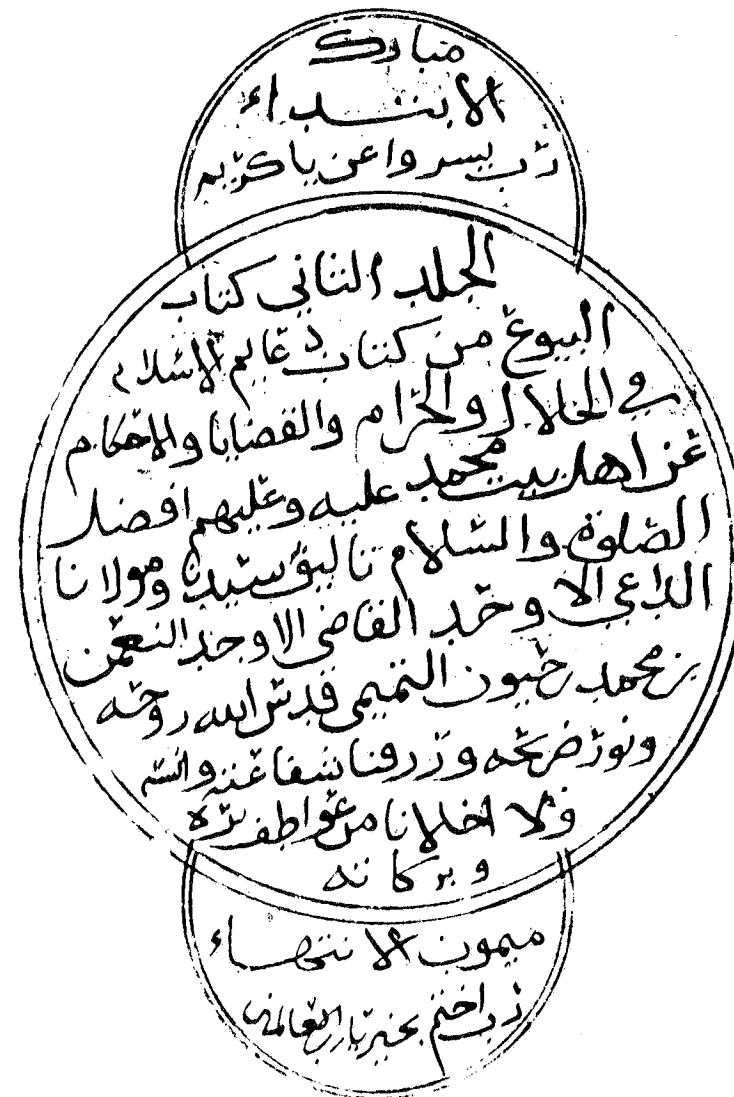 مبارك
الابتداء
رب يسر واعن يا كريم
الجلد الثاني كتاب
البيوع من كتاب دعايم الاسلام
في الحلال والحرام والقضايا والاحكام
عن اهل بيت محمد عليه وعليهم افضل
الصلوة والسلام تاليف سيدنا ومولانا
الداعي الاوحد القاضي الاوحد النعمن
بن محمد حيون التميمي قدس الله روحه
ونور ضريحه ورزقنا شفاعته وانسه
ولا اخلانا من عواطف بره
وبركاته
ميمون الانتهاء
رب اختم بخير يا رب العالمين